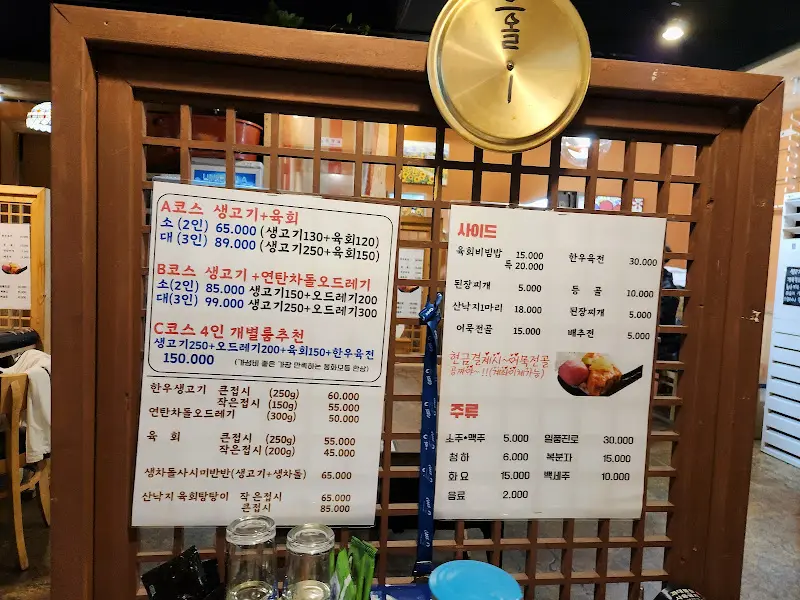 A코스 생고기+육회
소 (2인) 65.000 (생고기130+육회120)
대 (3인) 89.000 (생고기250+육회150)
B코스 생고기 +연탄차돌오드레기
소(2인) 85.000 생고기150+오드레기200
대(3인) 99.000 생고기250+오드레기300
C코스 4인 개별룸추천
생고기250+오드레기200+육회150+한우육전
150.000
한우생고기 큰접시 (250g) 60.000
작은접시 (150g) 55.000
연탄차돌오드레기 (300g) 50.000
육 회 큰접시 (250g) 55.000
작은접시 (200g) 45.000
생차돌사시미반반(생고기+생차돌) 65.000
산낙지 육회탕탕이 작은접시 65.000
큰접시 85.000
사이드
육회비빔밥 15.000 한우육전 30.000
특 20.000
된장찌개 5.000 등 골 10.000
산낙지1마리 18.000 된장찌개 5.000
어묵전골 15.000 배추전 5.000
현금결제시~어묵전골
주류
소주•맥주 5.000 일품진로 30.000
청하 6.000 복분자 15.000
화요 15.000 백세주 10.000
음료 2.000